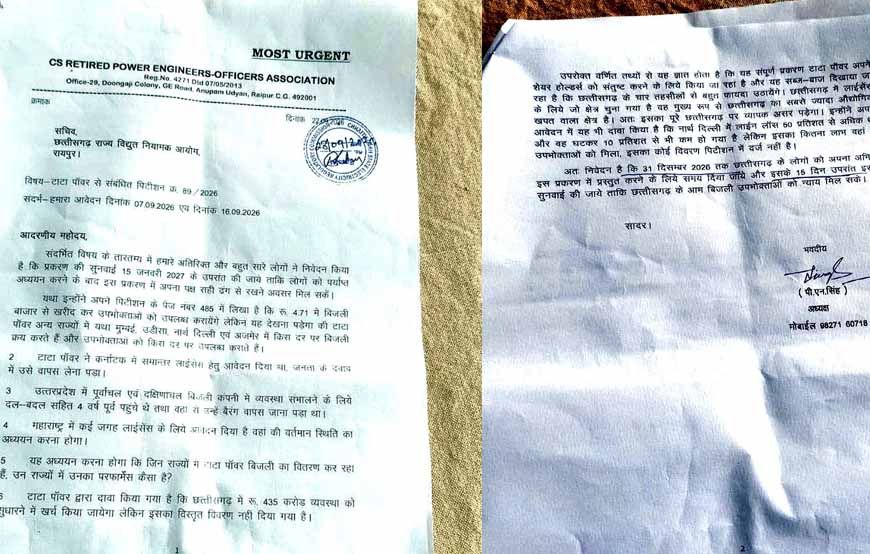 MOST URGENT
CS RETIRED POWER ENGINEERS-OFFICERS ASSOCIATION
Reg.No. 4271 Dtd 07/05/2013
Office-29, Doongaji Colony, GE Road, Anupam Udyan, Raipur C.G. 492001
क्रमांक
दिनांक 22.09.2026
सचिव,
छत्तीसगढ़ राज्य विद्युत नियामक आयोग,
रायपुर।
विषय–टाटा पॉवर से संबंधित पिटीशन क्र. 89/2026
संदर्भ–हमारा आवेदन दिनांक 07.09.2026 एवं दिनांक 16.09.2026
आदरणीय महोदय,
संदर्भित विषय के तारतम्य में हमारे अतिरिक्त और बहुत सारे लोगों ने निवेदन किया
है कि प्रकरण की सुनवाई 15 जनवरी 2027 के उपरांत की जाये ताकि लोगों को पर्याप्त
अध्ययन करने के बाद इस प्रकरण में अपना पक्ष सही ढंग से रखने अवसर मिल सकें।
यथा इन्होंने अपने पिटीशन के पेज नंबर 485 में लिखा है कि रू. 4.71 में बिजली
बाजार से खरीद कर उपभोक्ताओं को उपलब्ध करायेंगे लेकिन यह देखना पड़ेगा की टाटा
पॉवर अन्य राज्यों में यथा मुम्बई, उडीसा, नार्थ दिल्ली एवं अजमेर में किस दर पर बिजली
क्रय करते हैं और उपभोक्ताओं को किस दर पर उपलब्ध कराते हैं।
2 टाटा पॉवर ने कर्नाटक में समान्तर लाईसेंस हेतु आवेदन दिया था, जनता के दवाब
में उसे वापस लेना पड़ा।
3 उत्तरप्रदेश में पूर्वांचल एवं दक्षिणांचल बिजली कंपनी में व्यवस्था संभालने के लिये
दल–बदल सहित 4 वर्ष पूर्व पहुचे थे तथा वहा से उन्हें बैरंग वापस जाना पड़ा था।
4 महाराष्ट्र में कई जगह लाईसेंस के लिये आवेदन दिया है वहां की वर्तमान स्थिति का
अध्ययन करना होगा।
5 यह अध्ययन करना होगा कि जिन राज्यों में टाटा पॉवर बिजली का वितरण कर रहा
हैं, उन राज्यों में उनका परफार्मेंस कैसा है?
6 टाटा पॉवर द्वारा दावा किया गया है कि छत्तीसगढ़ में रू. 435 करोड़ व्यवस्था को
सुधारने में खर्च किया जायेगा लेकिन इसका विस्तृत विवरण नहीं दिया गया है।
1
उपरोक्त वर्णित तथ्यों से यह ज्ञात होता है कि यह संपूर्ण प्रकरण टाटा पॉवर अपने
शेयर होल्डर्स को संतुष्ट करने के लिये किया जा रहा है और यह सब्ज–बाज दिखाया जा
रहा है कि छत्तीसगढ़ के चार तहसीलों से बहुत फायदा उठायेंगे। छत्तीसगढ़ में लाईसेंस
के लिये जो क्षेत्र चुना गया है वह मुख्य रूप से छत्तीसगढ़ का सबसे ज्यादा औद्योगिक
खपत वाला क्षेत्र है। अतः इसका पूरे छत्तीसगढ़ पर व्यापक असर पड़ेगा। इन्होंने अपने
आवेदन में यह भी दावा किया है कि नार्थ दिल्ली में लाईन लॉस 50 प्रतिशत से अधिक था
और वह घटकर 10 प्रतिशत से भी कम हो गया है लेकिन इसका कितना लाभ वहां के
उपभोक्ताओं को मिला, इसका कोई विवरण पिटीशन में दर्ज नहीं है।
अतः निवेदन है कि 31 दिसम्बर 2026 तक छत्तीसगढ़ के लोगों को अपना
इस प्रकरण में प्रस्तुत करने के लिये समय दिया जाये और इसके 15 दिन उपरांत
सुनवाई की जाये ताकि छत्तीसगढ़ के आम बिजली उपभोक्ताओं को न्याय मिल सके।
सादर।
भवदीय
(पी.एन.सिंह)
अध्यक्ष
मोबाईल 98271 60718
2